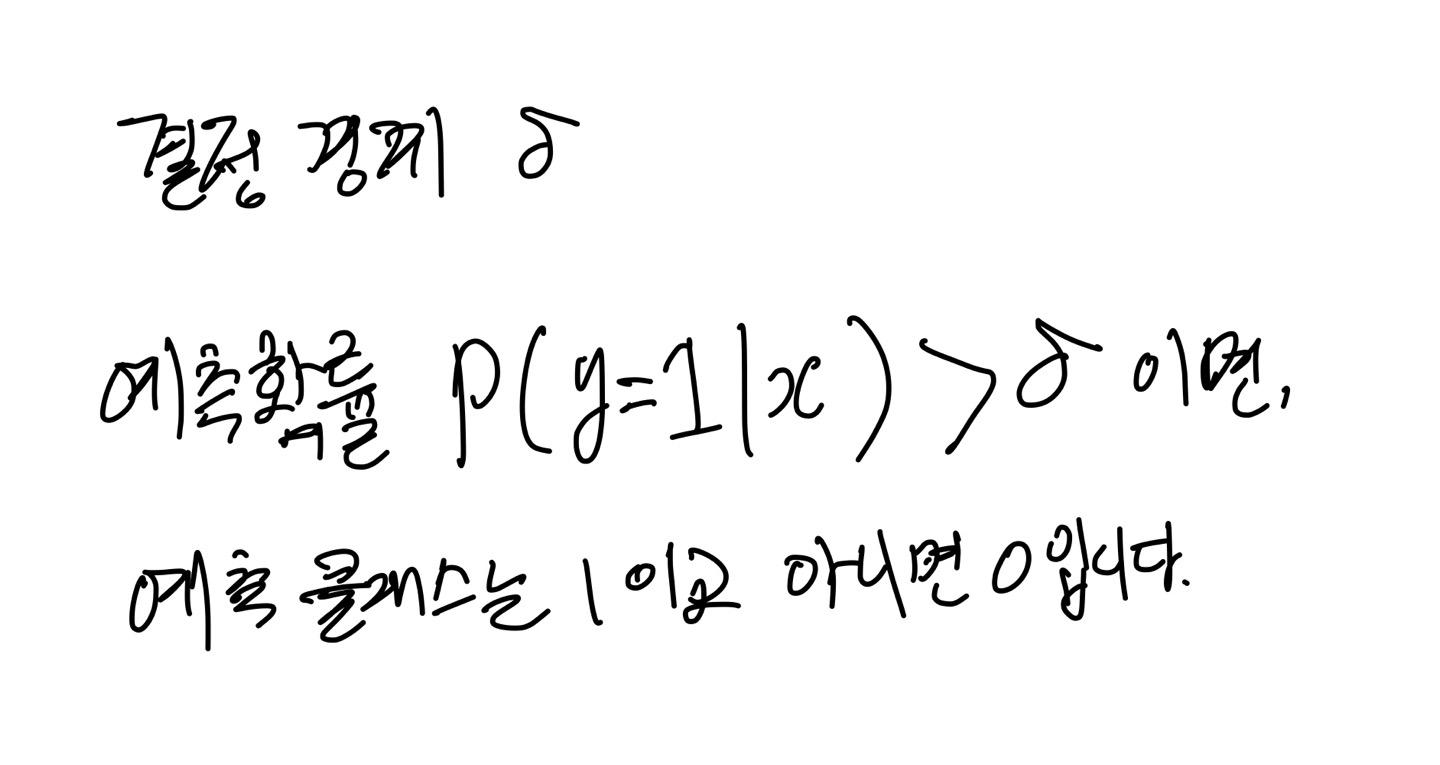 결정 경계 δ
예측확률 p(y=1|x) > δ 이면,
예측 클래스는 1 이고 아니면 0 입니다.